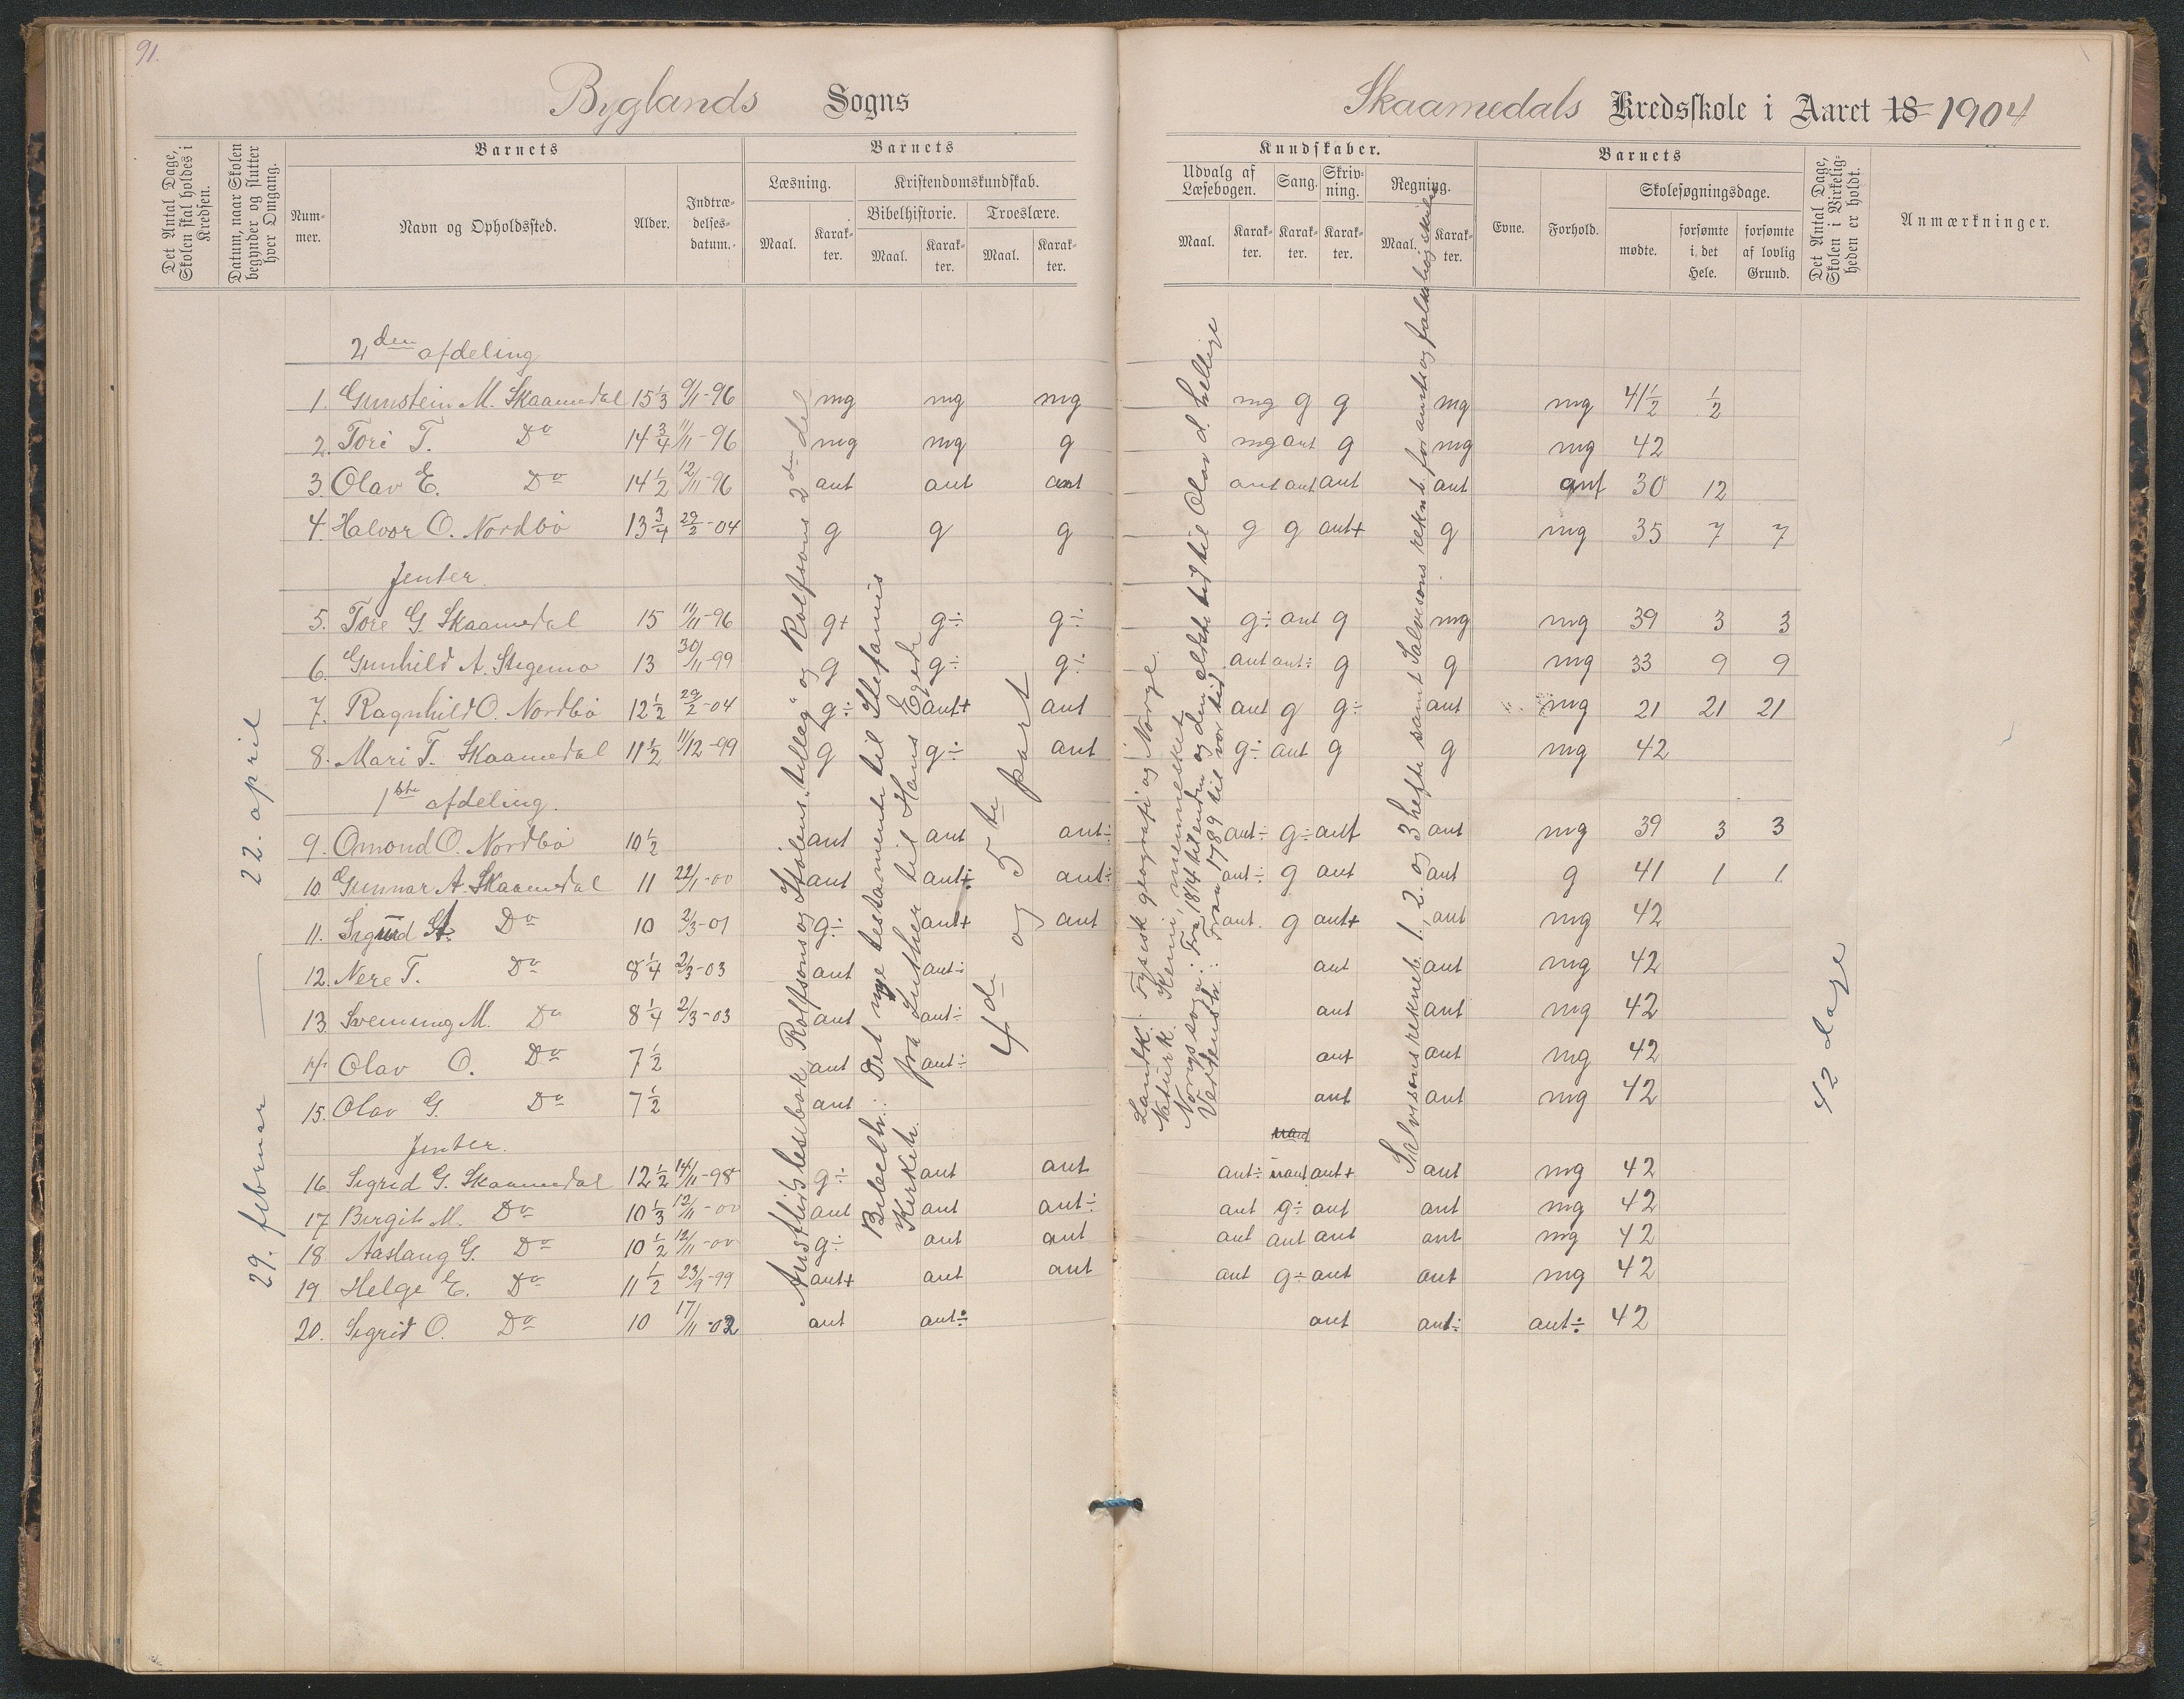 91.
Byglands Sogns
Skaamedals Kredsskole i Aaret 18 1904
Det Antal Dage, Skolen skal holdes i Kredsen.
Datum, naar Skolen begynder og slutter hver Omgang.
Barnets
Nummer.
Navn og Opholdssted.
Alder.
Indtrædelses-datum.
Barnets
Læsning.
Kristendomskundskab.
Bibelhistorie.
Troeslære.
Maal. Karakter. Maal. Karakter. Maal. Karakter.
Kundskaber.
Udvalg af Læsebogen. Sang. Skrivning. Regning.
Maal. Karakter. Karakter. Karakter. Maal. Karakter.
Barnets
Evne. Forhold.
Skolesøgningsdage.
mødte. forsømte i det Hele. forsømte af lovlig Grund.
Det Antal Dage, Skolen i Virkeligheden er holdt.
Anmærkninger.
2den afdeling
1. Gunstein M. Skaamedal 15 1/3 9/11-96 mg mg mg mg g g mg mg 41 1/2 1/2
2. Tore T. Do 14 3/4 11/11-96 mg mg g mg ant g mg mg 42
3. Olav E. Do 14 1/2 12/11-96 ant ant ant ant ant ant ant ant 30 12
4. Halvor O. Nordbö 13 3/4 29/2-04 g g g g g ant+ g mg 35 7 7
Jenter.
5. Tore G. Skaamedal 15 11/11-96 g+ g÷ g÷ g÷ ant g mg mg 39 3 3
6. Gunhild A. Stigemo 13 30/11-99 g g÷ g÷ ant ant÷ g g mg 33 9 9
7. Ragnhild O. Nordbö 12 1/2 29/2-04 g÷ ant+ ant ant g g÷ ant mg 21 21 21
8. Mari T. Skaamedal 11 1/2 11/12-99 g g÷ ant g÷ ant g g mg 42
1ste afdeling.
9. Omond O. Nordbö 10 1/2 ant ant ant÷ ant÷ g÷ ant ant mg 39 3 3
10. Gunnar A. Skaamedal 11 22/1-00 ant ant÷ ant÷ ant÷ g ant ant g 41 1 1
11. Sigurd Do 10 2/3-01 g÷ ant+ ant ant. g ant+ ant mg 42
12. Nere T. Do 8 1/4 2/3-03 ant ant÷ ant ant mg 42
13. Svenung M. Do 8 1/4 2/3-03 ant ant÷ ant ant mg 42
14. Olav O. Do 7 1/2 ant ant÷ ant ant mg 42
15. Olav G. Do 7 1/2 ant ant ant mg 42
Jenter.
16. Sigrid G. Skaamedal 12 1/2 14/11-98 g÷ ant ant ant÷ ant+ ant mg 42
17. Birgit M. Do 10 1/3 12/11-00 ant ant ant÷ ant g÷ ant ant mg 42
18. Aaslaug G. Do 10 1/2 12/11-00 g÷ ant ant ant ant ant ant mg 42
19. Helge E. Do 11 1/2 23/9-99 ant+ ant ant ant g÷ ant ant mg 42
20. Sigrid O. Do 10 17/11-02 ant ant÷ ant ant÷ ant÷ 42
29. februar — 22. april
Austlids lesebok, Rolfsons og Stölens "tilleg" og Rolfsons 2den del
Bibelh.: Det nye testamente til Stefanus
Kirkeh. fra Luther til Hans Egede
4de og 5te part
Landk.: Fysisk geografi og Norge.
Naturk. Kemi, mennesket
Norgssoga: Fra 1814 til enden og den eldste tid til Olav d. hellige
Verdensh.: Fran 1789 til vor tid
Salvisons rekneb. 1, 2. og 3 hefte samt Salvesons rekneb. for
42 dage